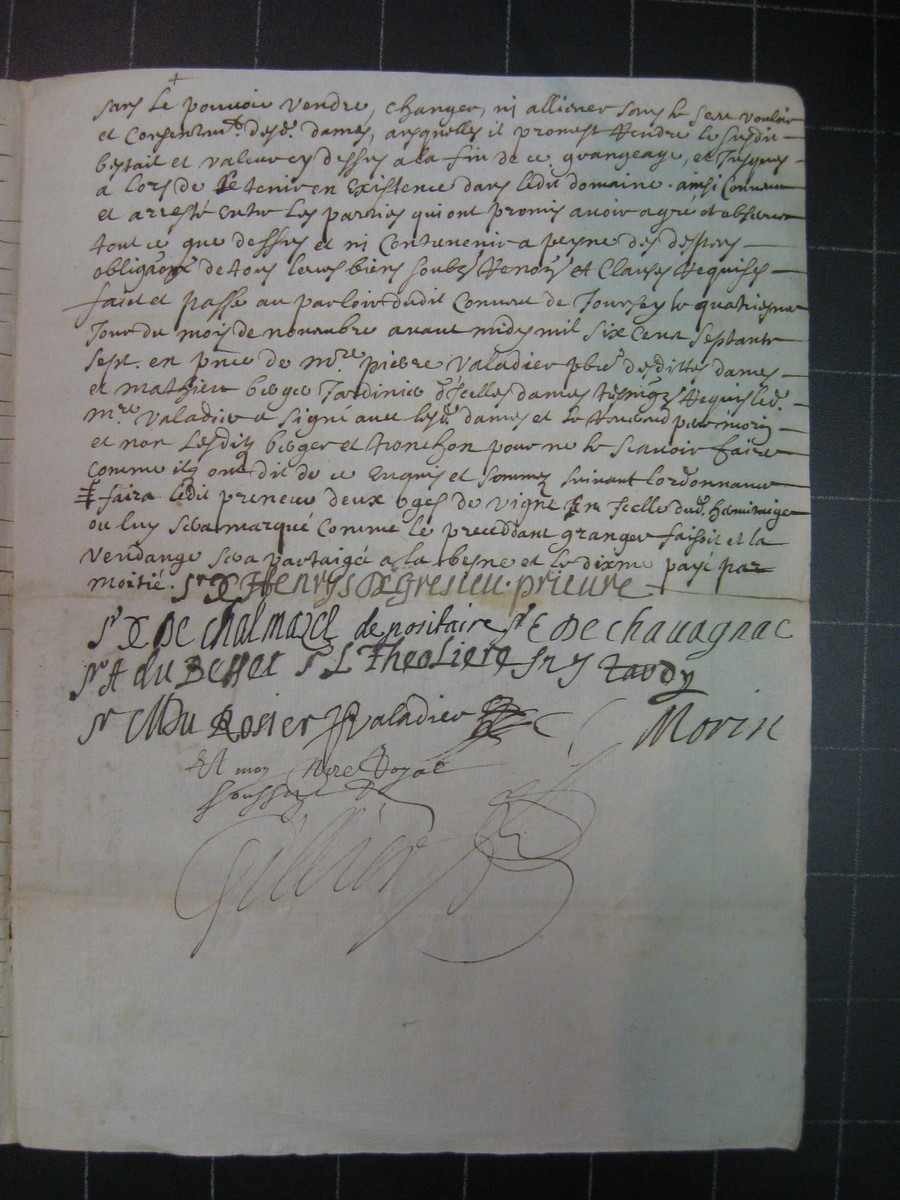 sans le pouvoir vendre, changer, ni alliener sans le sceu vouloir
et consentem.t desd. dames, ausquelles il promest rendre le susdit
bestail et valeur cy dessus a la fin de ce grangeage, et jusques
a lors de le tenir en existence dans ledit domaine. ainsi convenu
et arresté entre les parties qui ont promis avoir agré et observer
tout ce que dessus et ni contrevenir a peyne des despens
obligãons de tous leurs biens soubz renoñs et clauses requises
faict et passé au parloir dudit convent de Joursey le quatriesme
jour du mois de novembre avant midy mil six cent septante
sept. en pñce de m.re pierre Valadier pbre desdittes dames
et mathieu berger jardinier d'jcelles dames tesmoings requis led.
m.re Valadier a signé avec lesd. dames et le
et non lesditz berger et tronchon pour ne le scavoir faire
comme ils ont dit de ce enquis et sommés suivant l'ordonnance
faira ledit preneur deux de vigne en jcelle dud. hermitage
ou luy sera marqué comme le precedant granger faisoit et la
vendange sera partaigée a la benne et le dixme payé par
moitié. Sr Henrys D gresieu. prieure
Sr De chalmazel depositaire Sr E De chavagnac
Sr A du Besset Sr L Theoliere Sr tardy
Sr M Du Rosier Valadier Morin
Et moy Nore Royal
soussigné
Gillier